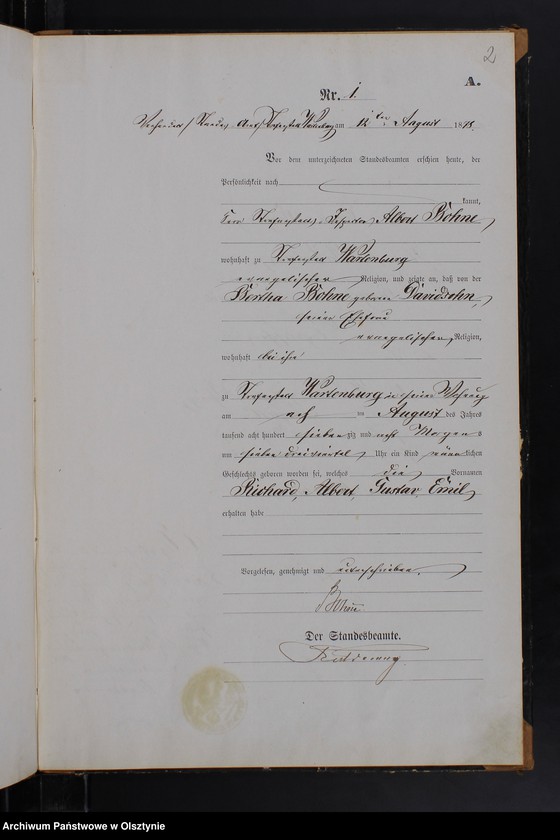 2
A.
Nr. 1.
am 12ten August 1878.
Vor dem unterzeichneten Standesbeamten erschien heute, der
Persönlichkeit nach
kannt,
Albert Böhne,
wohnhaft zu Wartenburg
evangelischer Religion, und zeigte an, daß von der
Bertha Böhne geborne Davidsohn,
seiner Ehefrau
evangelischer Religion,
wohnhaft bei ihm
zu Wartenburg in seiner Wohnung
am acht im August des Jahres
tausend acht hundert siebenzig und acht Morgens
um sieben dreiviertel Uhr ein Kind männlichen
Geschlechts geboren worden sei, welches die Vornamen
Richard, Albert, Gustav, Emil,
erhalten habe
Vorgelesen, genehmigt und unterschrieben.
Böhne
Der Standesbeamte.
Archiwum Państwowe w Olsztynie